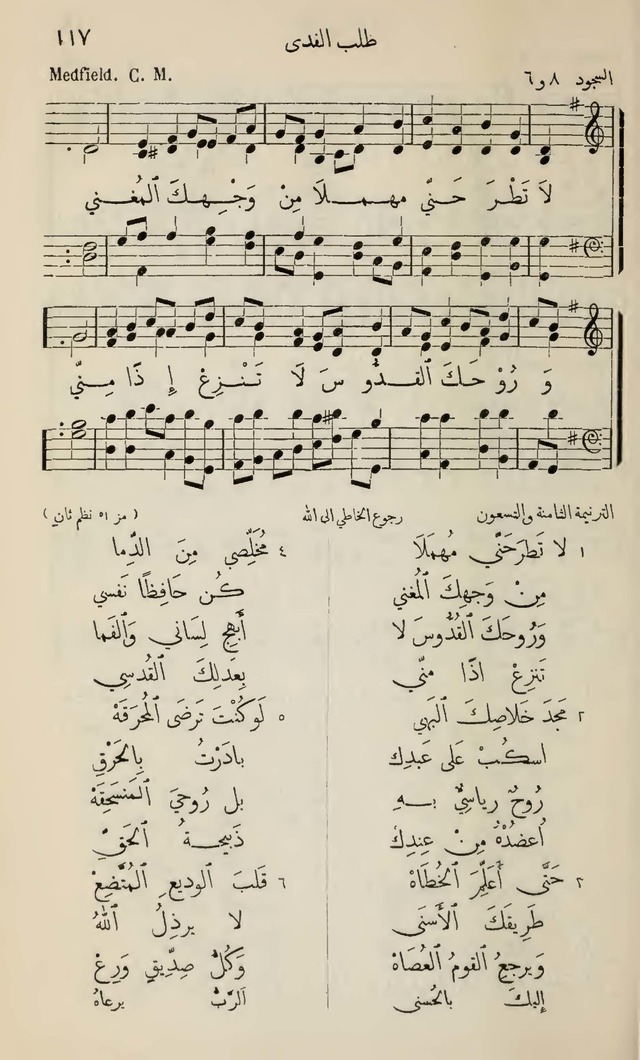 ١١٧ طلب الفدى
Medfield. C. M. السجود ٨ و٦
لاَ تَطْرَ حَنّي مهمـلاَ مِنْ وَجْـهِـكَ ٱلمُغـني
وَ رُوْ حَكَ ٱلقـدُّو سَ لَا تَنْـزِعْ إِ ذَا مِـنّي
الترنيمة الثامنة والتسعون رجوع الخاطي الى الله ( مز ٥١ نظم ثانٍ )
١ لا تَطرَحَنّي مُهمَلَا
مِنْ وَجهِكَ ٱلمُغني
وَرُوحَكَ ٱلقُدُّوسَ لا
تَنزِعْ اذًا مِنّي
٢ مَجدَ خَلاصِكَ ٱلبَهي
اسكُبْ عَلى عَبدِك
رُوحٌ رياسِيٌّ بـهِ
أُعضُدْهُ مِنْ عِندِكَ
٢ حَتَّى أُعَلِّمَ ٱلخُطَاهْ
طَرِيقَكَ ٱلأَسنَى
وَيرجعُ ٱلقومُ ٱلعُصَاهْ
إِليكَ بالحُسنى
٤ مُخَلِّصِي مِنَ الدِّما
كُن حَافِظًا نَفسي
أَبهِج لِسَاني وَٱلفَما
بِعَدلِكَ ٱلقُدسِي
٥ لَوكُنْتَ تَرضَى ٱلمُحرَقَهْ
بادَرْتُ بِٱلحَرْقِ
بل رُوحيَ ٱلمَنسَحِقَهْ
ذَبيحةُ ٱلحَقِّ
٦ قَلبَ ٱلوديعِ ٱلمُتَّضِعْ
لا يرذِلُ ٱللهُ
وَكُلُّ صِدِّيقٍ وَرِعْ
ٱلرَّبُّ يرعاهُ